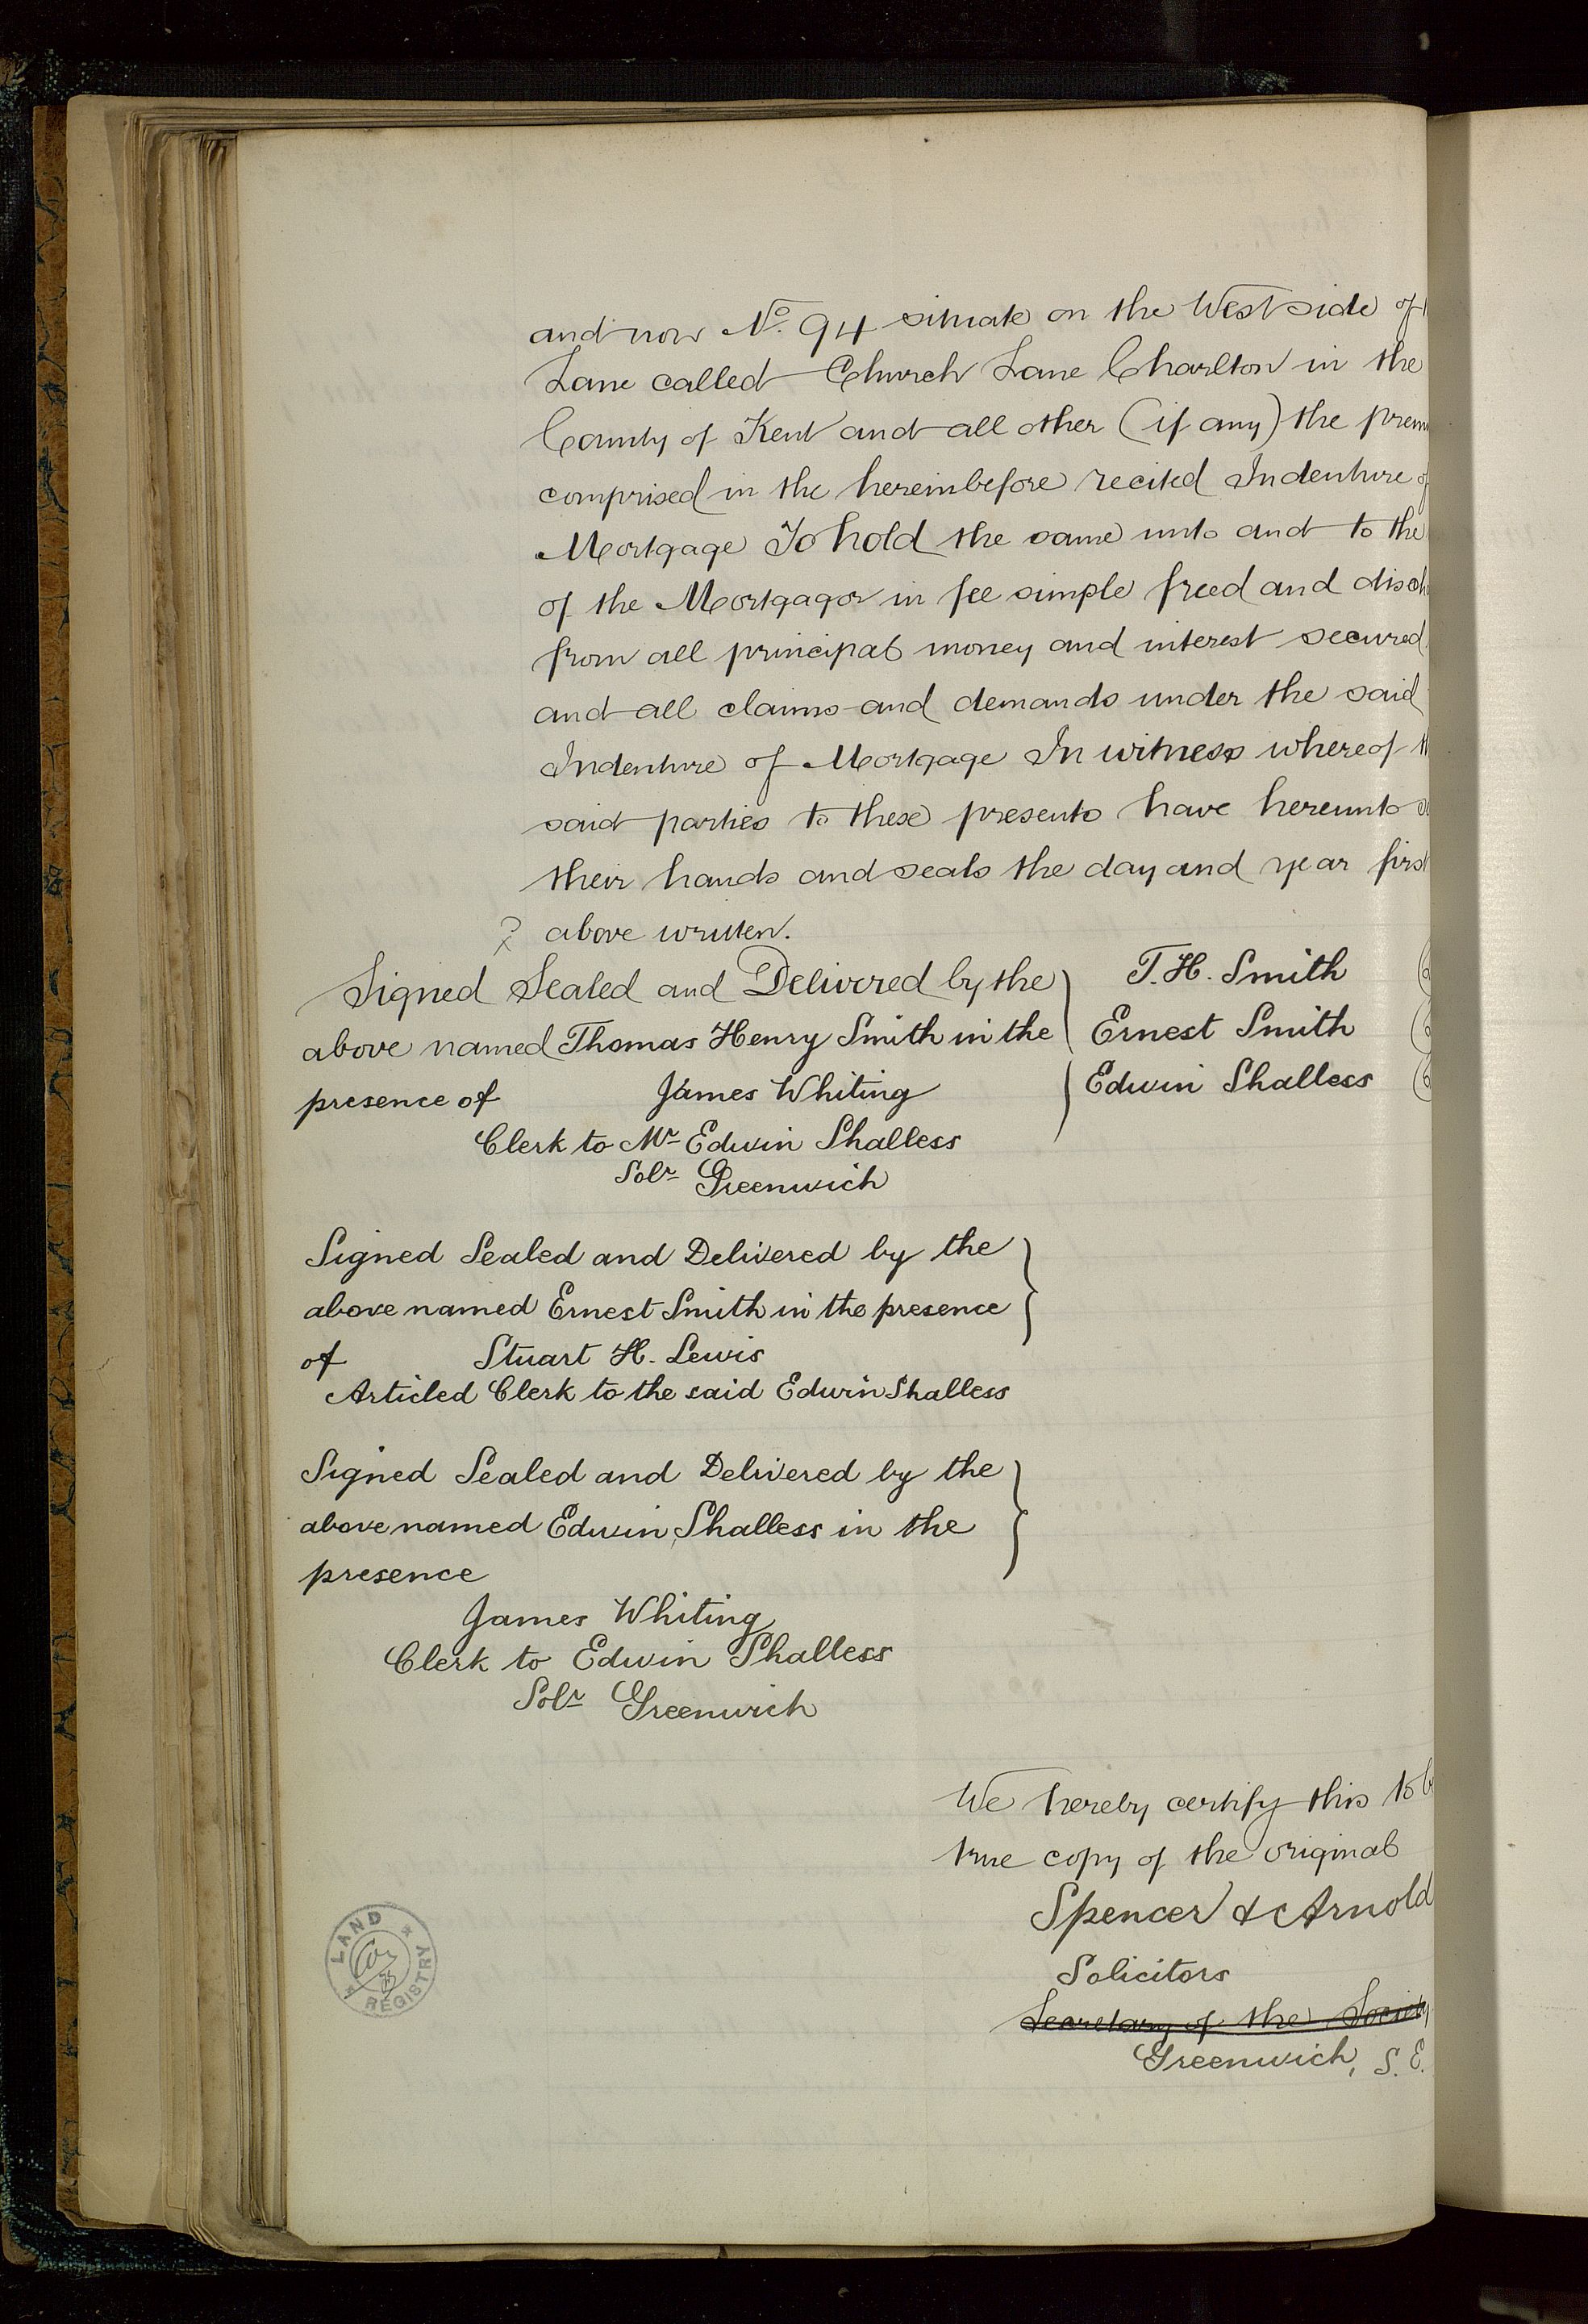 and now No. 94 situate on the West side of
Lane called Church Lane Charlton in the
County of Kent and all other (if any) the prem
comprised in the hereinbefore recited Indenture of
Mortgage To hold the same unto and to the
of the Mortgagor in fee simple freed and disch
from all principal money and interest secured
and all claims and demands under the said
Indenture of Mortgage In witness whereof th
said parties to these presents have hereunto s
their hands and seals the day and year first
? above written.
Signed Sealed and Delivered by the
above named Thomas Henry Smith in the
presence of James Whiting
Clerk to Mr Edwin Shalless
Solr Greenwich
T. H. Smith
Ernest Smith
Edwin Shalless
Signed Sealed and Delivered by the
above named Ernest Smith in the presence
of Stuart H. Lewis
Articled Clerk to the said Edwin Shalless
Signed Sealed and Delivered by the
above named Edwin Shalless in the
presence
James Whiting
Clerk to Edwin Shalless
Solr Greenwich
We hereby certify this to b
true copy of the original
Spencer & Arnold
Solicitors
Secretary of the Society
Greenwich, S.E.
LAND REGISTRY